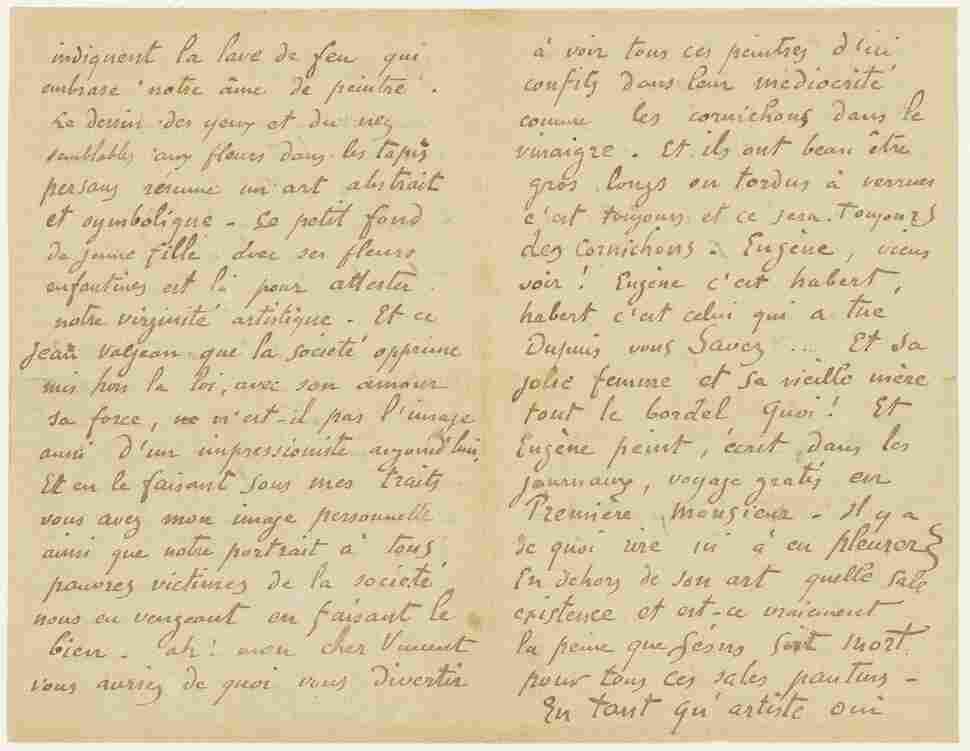 indiquent la lave de feu qui
embrase notre âme de peintre.
Le dessin des yeux et du nez
semblables aux fleurs dans les tapis
persans résume un art abstrait
et symbolique - Ce petit fond
de jeune fille avec ses fleurs
enfantines est là pour attester
notre virginité artistique - Et ce
Jean valjean que la société opprime
mis hors la loi, avec son amour
sa force, n'est-il pas l'image
aussi d'un impressioniste aujourd'hui.
Et en le faisant sous mes traits
vous avez mon image personnelle
ainsi que notre portrait à tous
pauvres victimes de la société
nous en vengeant en faisant le
bien - ah! mon cher Vincent
vous auriez de quoi vous divertir
à voir tous ces peintres d'ici
confits dans leur médiocrité
comme les cornichons dans le
vinaigre. Et ils ont beau être
gros longs ou tordus à verrues
c'est toujours et ce sera toujours
des cornichons. Eugène, viens
voir! Eugène c'est habert,
habert c'est celui qui a tué
Dupuis vous savez ... Et sa
jolie femme et sa vieille mère
tout le bordel quoi! Et
Eugène peint, écrit dans les
journaux, voyage gratis en
Première Monsieur - Il y a
de quoi rire ici à en pleurer
En dehors de son art quelle sale
existence et est-ce vraiement
la peine que Jésus soit mort
pour tous ces sales pantins -
En tant qu'artiste oui